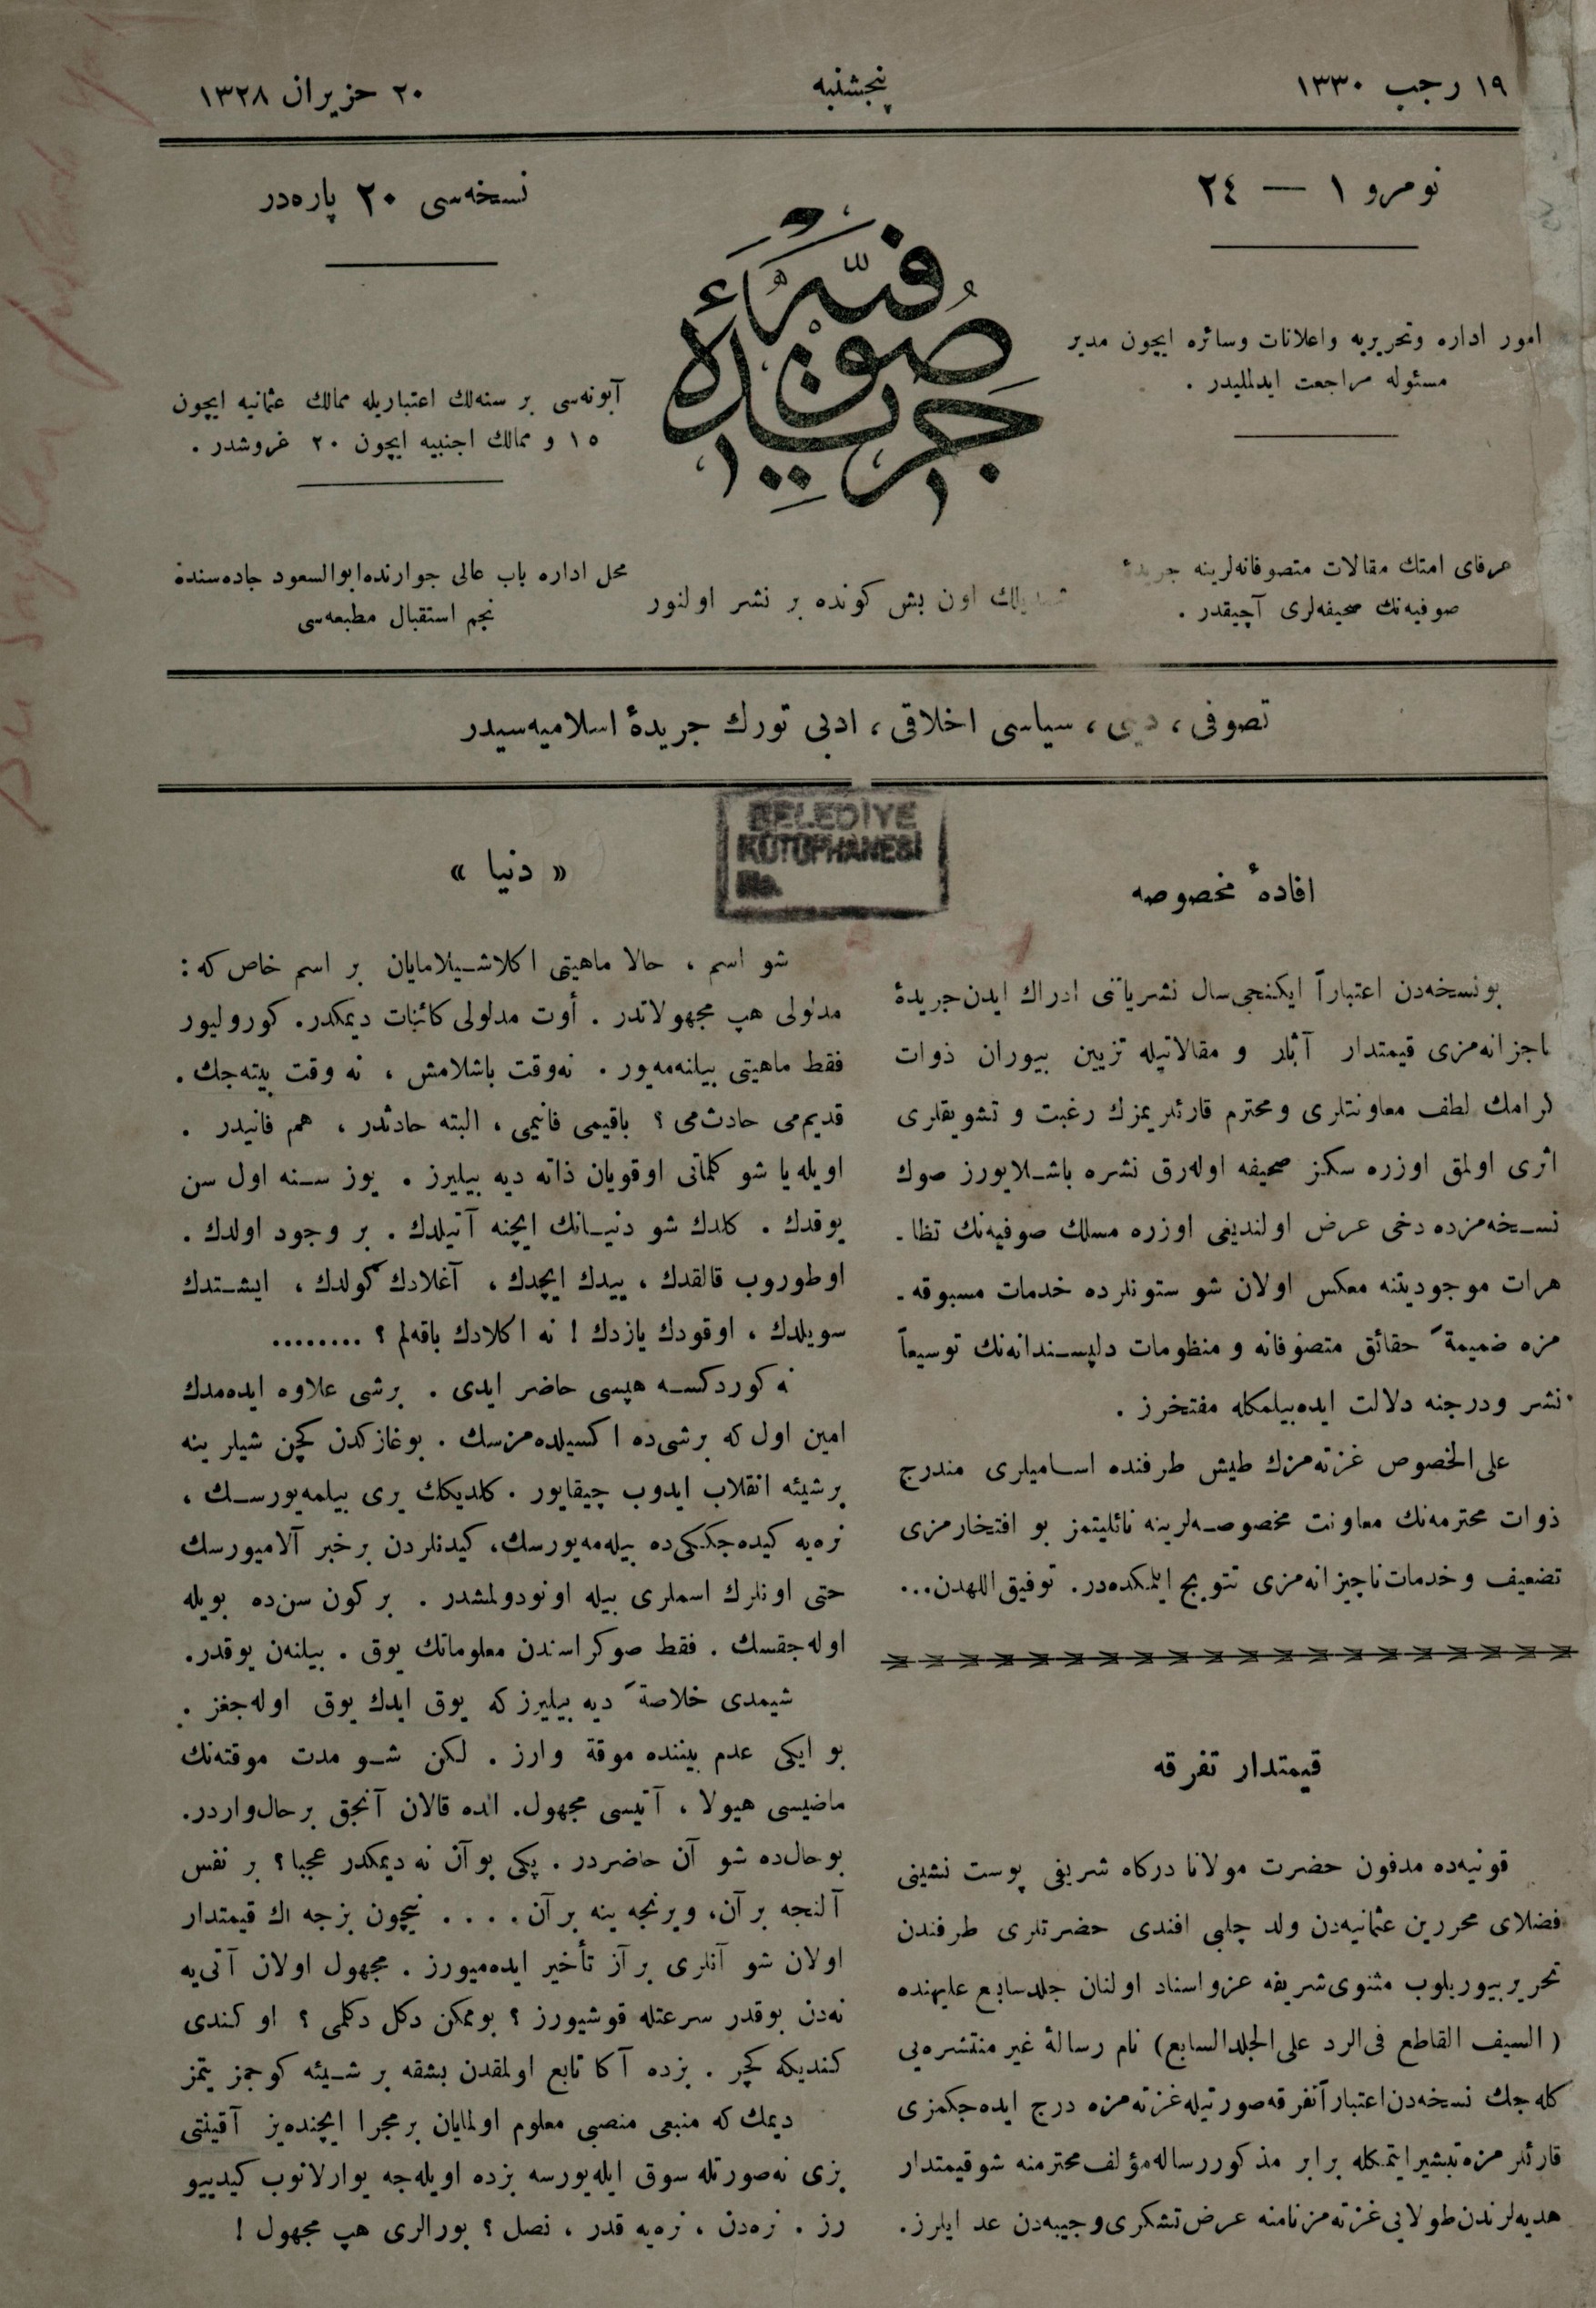 ١٩ رجب ١٣٣٠
پنجشنبه
٢٠ حزیران ١٣٢٨
نومرو ١ — ٢٤
نسخه‌سی ٢٠ پاره‌در
جریدهٔ صوفیه
امور اداره وتحریریه واعلانات وسائره ایچون مدیر
مسئوله مراجعت ایدلملیدر .
آبونه‌سی بر سنه‌لك اعتباریله ممالك عثمانیه ایچون
١٥ و ممالك اجنبیه ایچون ٢٠ غروشدر .
عرفای امتك مقالات متصوفانه‌لرینه جریدهٔ
صوفیه‌نك صحیفه‌لری آچیقدر .
اون بش كونده بر نشر اولنور
محل اداره باب عالی جوارنده‌ابوالسعود جاده‌سنده
نجم استقبال مطبعه‌سی
تصوفی ، دینی ، سیاسی اخلاقی ، ادبی تورك جریدهٔ اسلامیه‌سیدر
BELEDİYE
KÜTÜPHANESİ
No.
افادهٔ مخصوصه
بونسخه‌دن اعتباراً ایكنجی‌سال نشریاتنی ادراك ایدن‌جریدهٔ
ناجزانه‌مزی قیمتدار آثار و مقالاتیله تزیین بیوران ذوات
كرامك لطف معاونتلری ومحترم قارئلریمزك رغبت و تشویقلری
اثری اولمق اوزره سكز صحیفه اوله‌رق نشره باشلایورز صوك
نسخه‌مزده دخی عرض اولندیغی اوزره مسلك صوفیه‌نك تظا-
هرات موجودیتنه معكس اولان شو ستونلرده خدمات مسبوقه-
مزه ضمیمةً حقائق متصوفانه و منظومات دلپسندانه‌نك توسیعاً
نشر ودرجنه دلالت ایده‌بیلمكله مفتخرز .
علی‌الخصوص غزته‌مزك طیش طرفنده اسامیلری مندرج
ذوات محترمه‌نك معاونت مخصوصه‌لرینه نائلیتمز بو افتخارمزی
تضعیف وخدمات‌ناچیزانه‌مزی تتویج ایلمكده‌در. توفیق‌اللهدن...
قیمتدار تفرقه
قونیه‌ده مدفون حضرت مولانا دركاه شریفی پوست نشینی
فضلای محررین عثمانیه‌دن ولد چلبی افندی حضرتلری طرفندن
تحریربیوریلوب مثنوی‌شریفه عزواسناد اولنان جلدسابع علیهنده
( السیف القاطع فی‌الرد علی‌الجلدالسابع) نام رسالهٔ غیر منتشره‌یی
كله‌جك نسخه‌دن‌اعتباراًتفرقه‌صورتیله‌غزته‌مزه درج ایده‌جكمزی
قارئلرمزه‌تبشیرایتمكله برابر مذكوررساله‌مؤلف‌محترمنه شوقیمتدار
هدیه‌لرندن‌طولایی‌غزته‌مزنامنه عرض‌تشكری‌وجیبه‌دن عد ایلرز.
« دنیا »
شو اسم ، حالا ماهیتی اكلاشیلامایان بر اسم خاص كه :
مدلولی هپ مجهولاتدر . أوت مدلولی كائنات دیمكدر. كورولیور
فقط ماهیتی بیلنه‌مه‌یور . نه‌وقت باشلامش ، نه وقت بیته‌جك .
قدیم‌می حادث‌می ؟ باقیمی فانیمی ، البته حادثدر ، هم فانیدر .
اویله یا شو كلماتی اوقویان ذاته دیه بیلیرز . یوز سنه اول سن
یوقدك . كلدك شو دنیانك ایچنه آتیلدك . بر وجود اولدك .
اوطوروب قالقدك ، ییدك ایچدك ، آغلادك كولدك ، ایشتدك
سویلدك ، اوقودك یازدك ! نه اكلادك باقه‌لم ؟ ........
نه كوردكسه هپسی حاضر ایدی . برشی علاوه ایده‌مدك
امین اول كه برشی‌ده اكسیلده‌مزسك . بوغازكدن كچن شیلر ینه
برشیئه انقلاب ایدوب چیقایور . كلدیكك یری بیلمه‌یورسك ،
نره‌یه كیده‌جككی‌ده بیله‌مه‌یورسك، كیدنلردن برخبر آلامیورسك
حتی اونلرك اسملری بیله اونودولمشدر . بركون سن‌ده بویله
اوله‌جقسك . فقط صوكراسندن معلوماتك یوق . بیلنه‌ن یوقدر.
شیمدی خلاصةً دیه بیلیرز كه یوق ایدك یوق اوله‌جغز .
بو ایكی عدم بیننده موقة وارز . لكن شو مدت موقته‌نك
ماضیسی هیولا ، آتیسی مجهول. الده قالان آنجق برحال‌واردر.
بوحال‌ده شو آن حاضردر . پكی بوآن نه دیمكدر عجبا؟ بر نفس
آلنجه برآن، ویرنجه ینه برآن.... نیچون بزجه اك قیمتدار
اولان شو آنلری برآز تأخیر ایده‌میورز . مجهول اولان آتی‌یه
نه‌دن بوقدر سرعتله قوشیورز ؟ بوممكن دكل دكلمی ؟ او كندی
كندیكه كچر . بزده آكا تابع اولمقدن بشقه بر شیئه كوجمز یتمز
دیمك كه منبعی منصبی معلوم اولمایان برمجرا ایچنده‌یز آقینتی
بزی نه‌صورتله سوق ایله‌یورسه بزده اویله‌جه یوارلانوب كیدییو
رز . نره‌دن ، نره‌یه قدر ، نصل ؟ بورالری هپ مجهول !